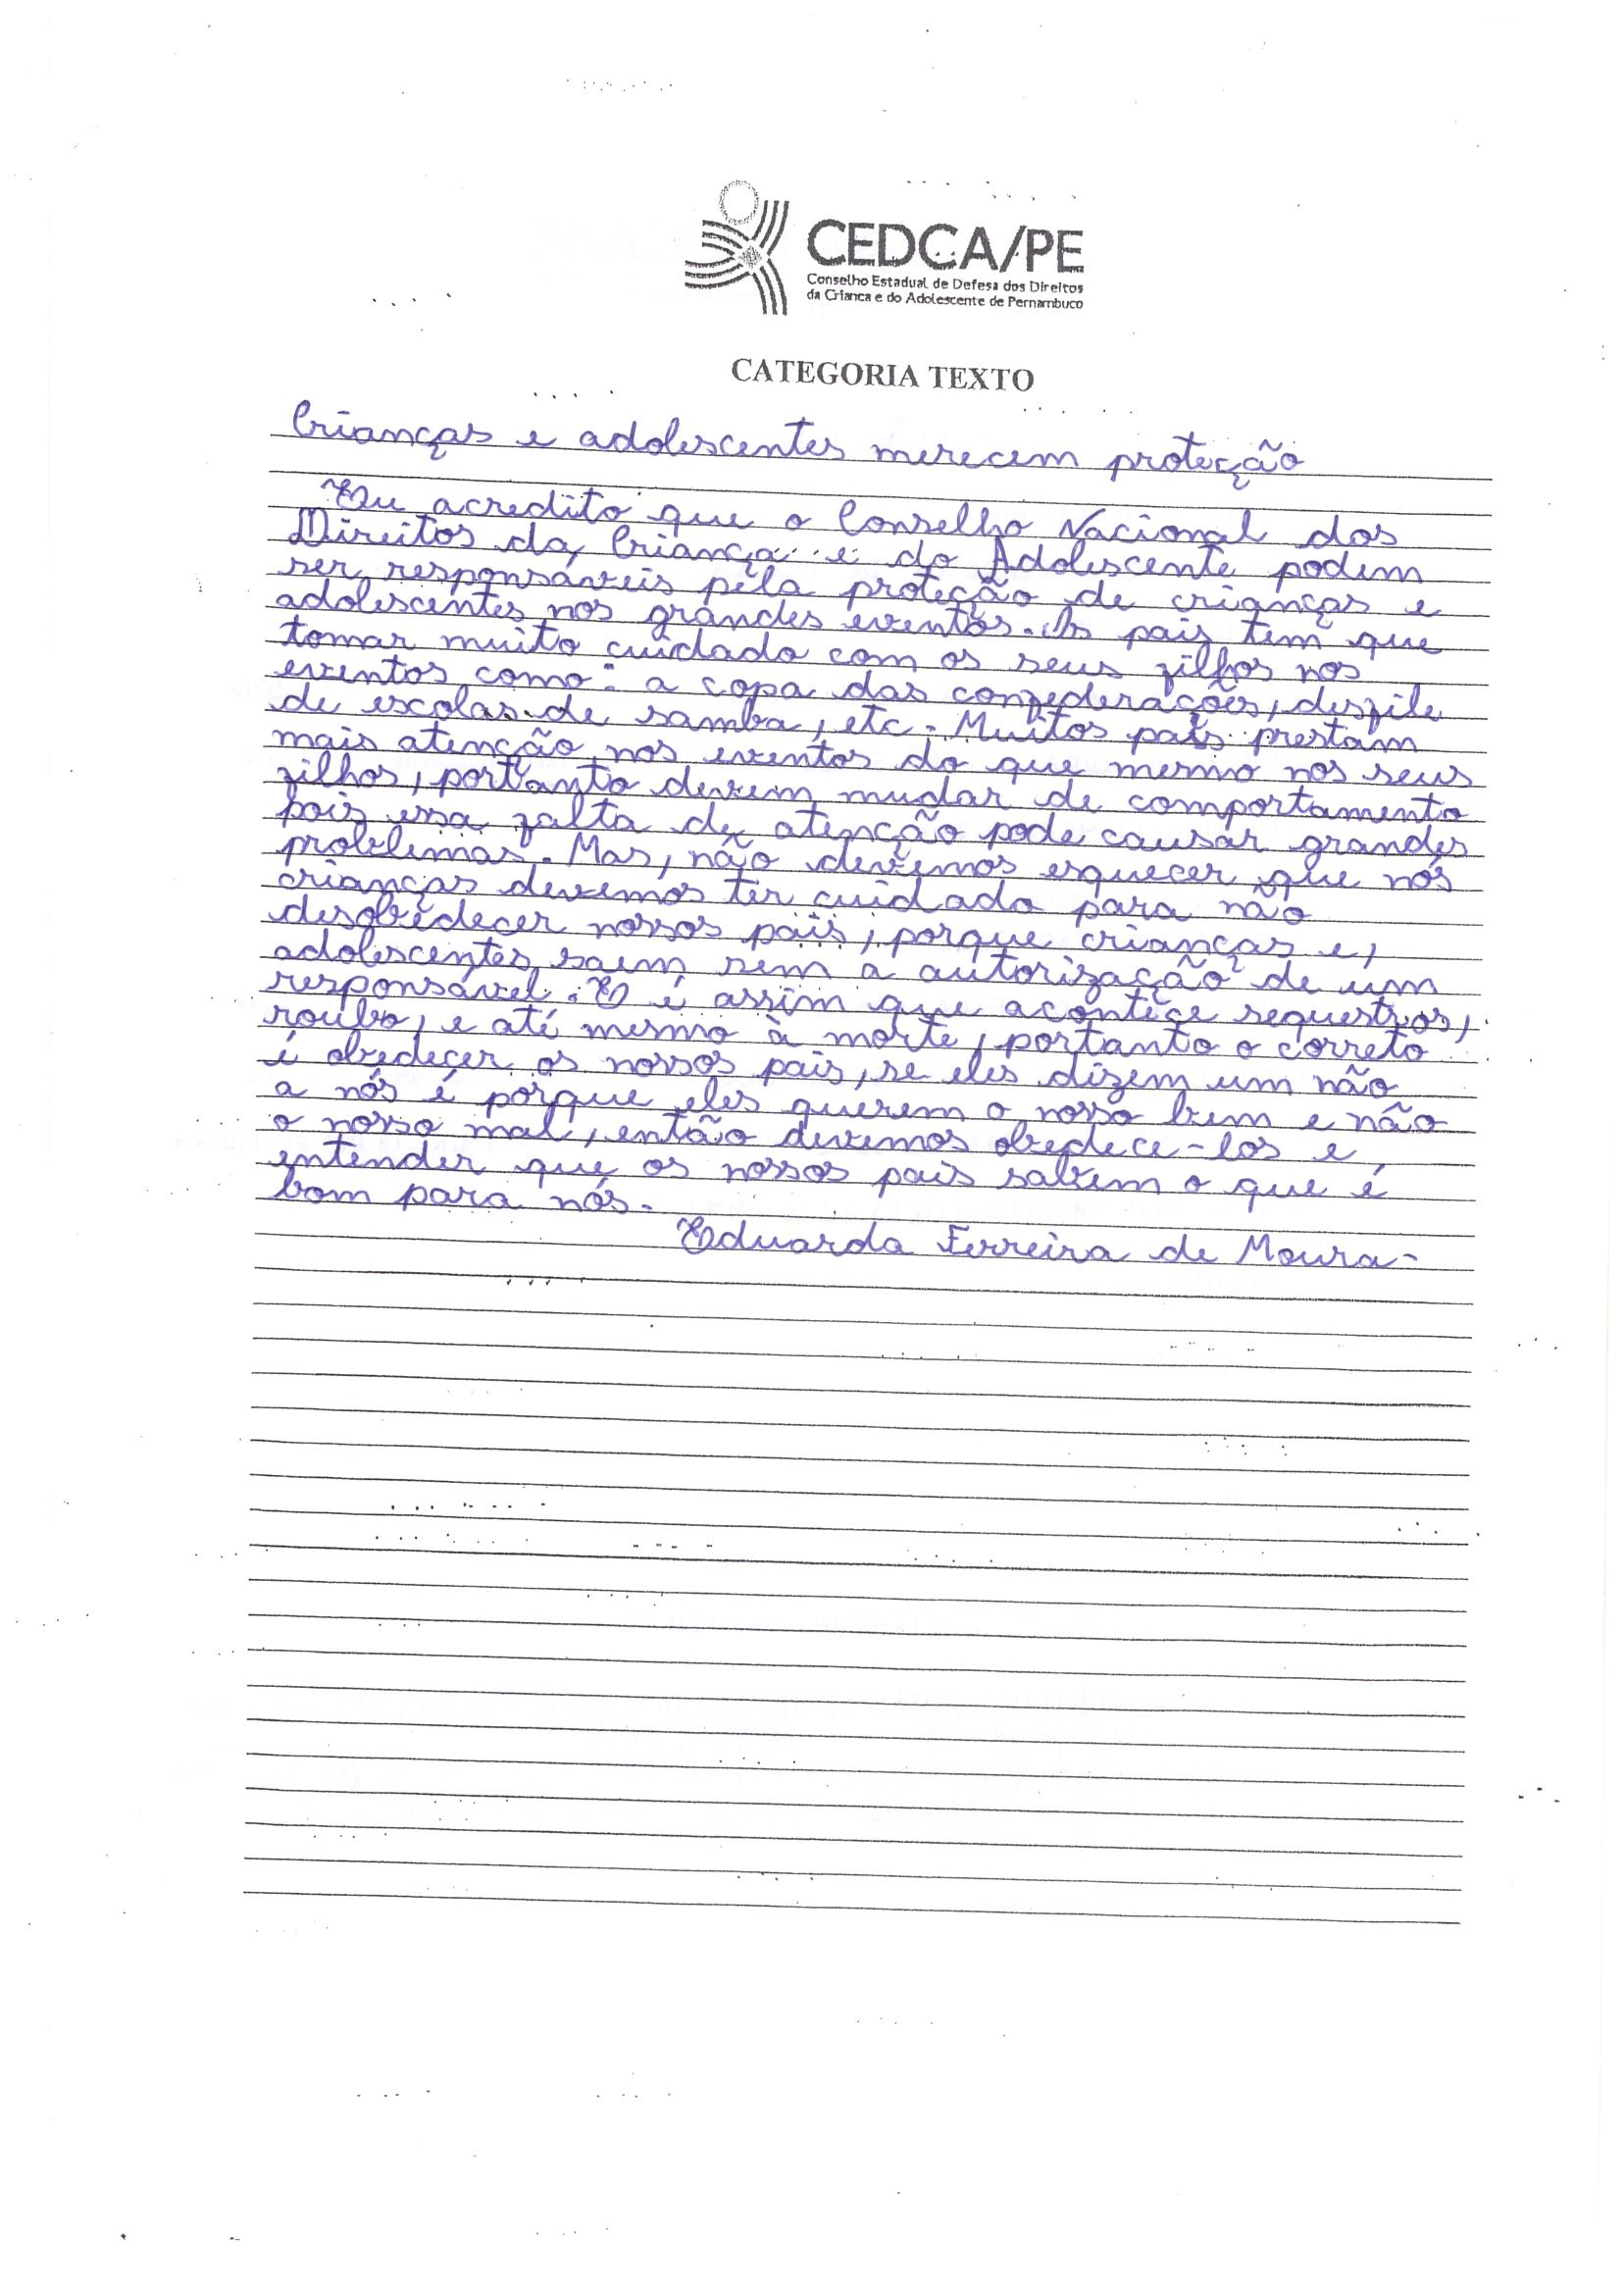 CEDCA/PE
Conselho Estadual de Defesa dos Direitos
da Criança e do Adolescente de Pernambuco
CATEGORIA TEXTO
Crianças e adolescentes merecem proteção
Eu acredito que o Conselho Nacional dos
Direitos da Criança e do Adolescente podem
ser responsáveis pela proteção de crianças e
adolescentes nos grandes eventos. Os pais tem que
tomar muito cuidado com os seus filhos nos
eventos como: a copa das confederações, desfile
de escolas de samba, etc. Muitos pais prestam
mais atenção nos eventos do que mesmo nos seus
filhos, portanto devem mudar de comportamento
pois essa falta de atenção pode causar grandes
problemas. Mas, não devemos esquecer que nós
crianças devemos ter cuidado para não
desobedecer nossos pais, porque crianças e,
adolescentes saem sem a autorização de um
responsável. E é assim que acontece sequestros,
roubo, e até mesmo à morte, portanto o correto
é obedecer os nossos pais, se eles dizem um não
a nós é porque eles querem o nosso bem e não
o nosso mal, então devemos obedece-los e
entender que os nossos pais sabem o que é
bom para nós.
Eduarda Ferreira de Moura-